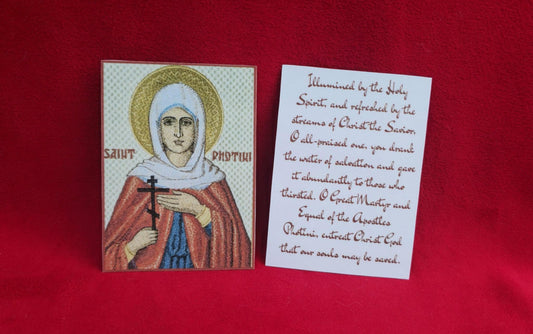 SAINT PHOTINI
Illumined by the Holy
Spirit, and refreshed by the
streams of Christ the Savior,
O all-praised one, you drank
the water of salvation and gave
it abundantly to those who
thirsted. O Great Martyr and
Equal of the Apostles
Photini, entreat Christ God
that our souls may be saved.